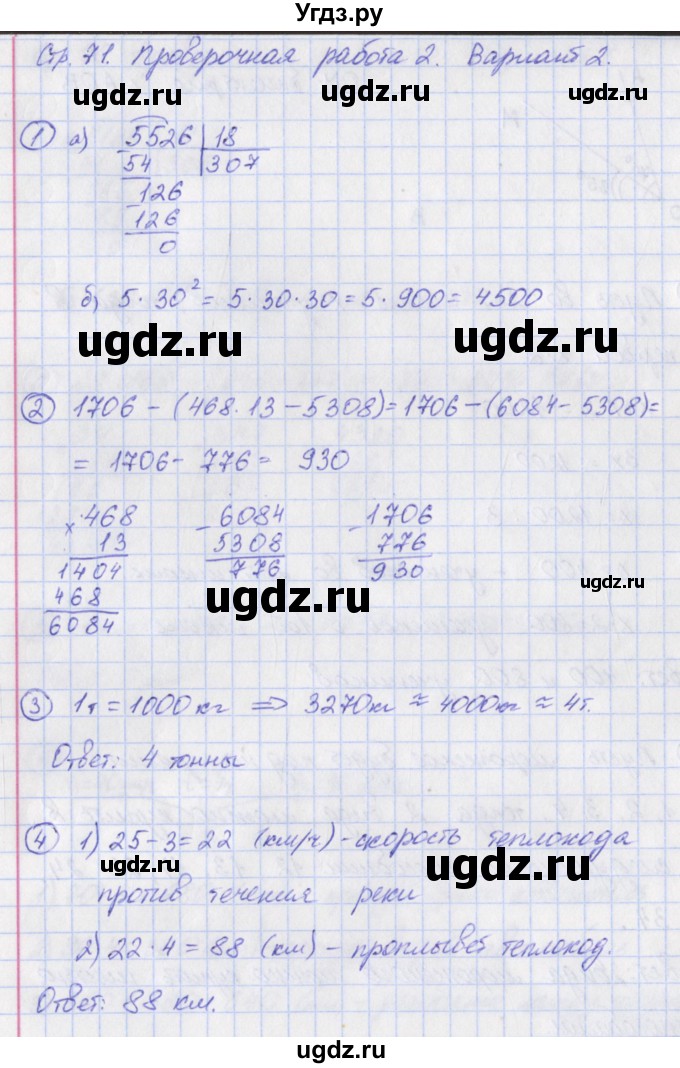 Угдз.ру
Стр. 71. Проверочная работа 2. Вариант 2.
ugdz.ru ugdz.ru
1 а) 5526 | 18
54 307
126
126
0
б) 5·30² = 5·30·30 = 5·900 = 4500
ugdz.ru ugdz.ru
2 1706 - (468·13 - 5308) = 1706 - (6084 - 5308) =
= 1706 - 776 = 930
×468 -6084 -1706
13 5308 776
1404 776 930
468
6084
ugdz.ru ugdz.ru
3 1т = 1000 кг ⇒ 3270кг ≈ 4000кг ≈ 4т.
Ответ: 4 тонны
4 1) 25 - 3 = 22 (км/ч) - скорость теплохода
против течения реки
ugdz.ru ugdz.ru
2) 22·4 = 88 (км) - проплывёт теплоход.
Ответ: 88 км.
ugdz.ru ugdz.ru
ugdz.ru